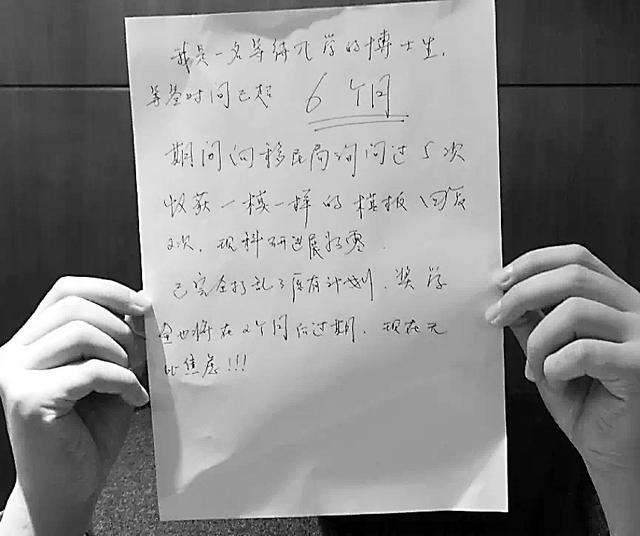 我是一名等待入学的博士生.
等签时间已超 6个月
期间向移民局询问过5次
收获一模一样的模板回复
2次. 现科研进展为零.
已完全打乱了原有计划. 奖学
金也将在2个月后过期. 现在无
比焦虑!!!